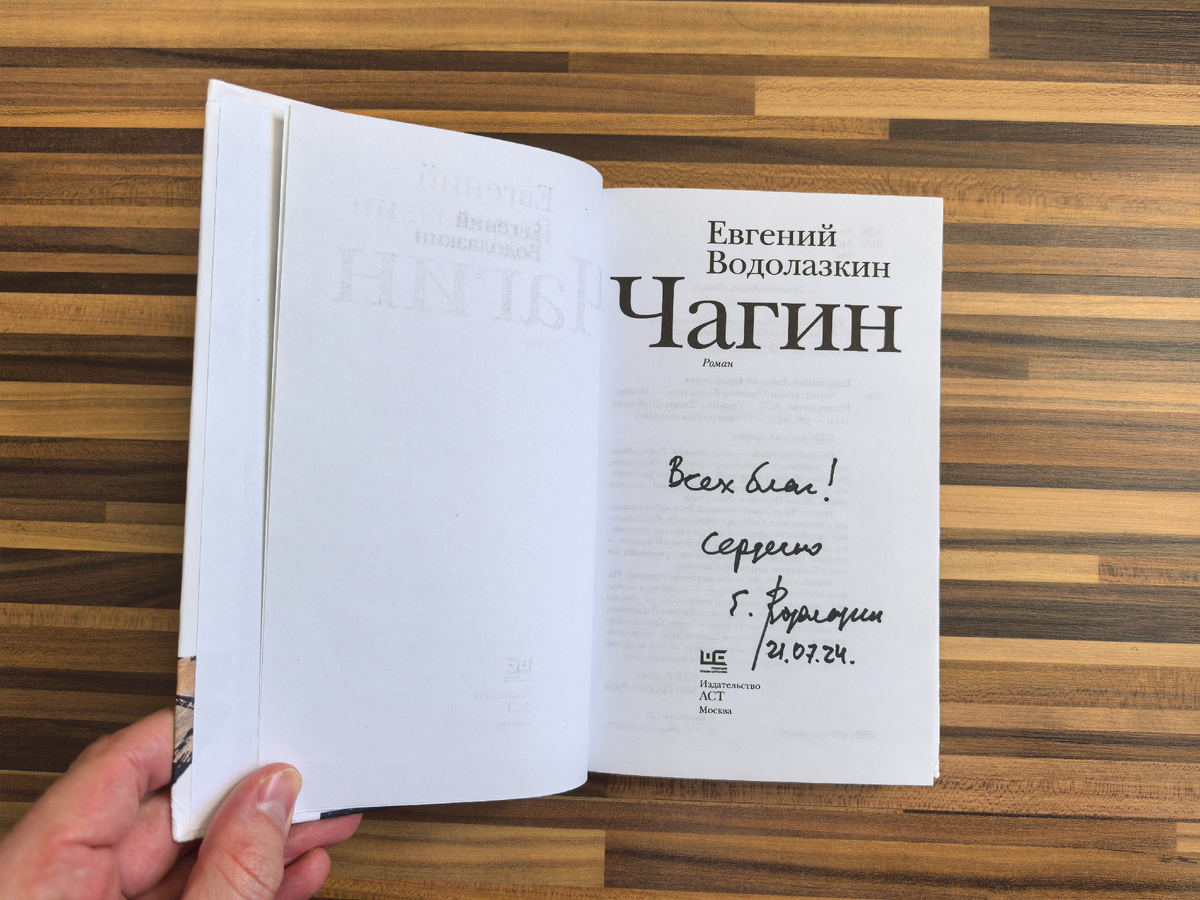 Евгений
Водолазкин
Чагин
Роман
Всех благ!
Сердечно
Е. Водолазкин
21.07.24.
Издательство
АСТ
Москва